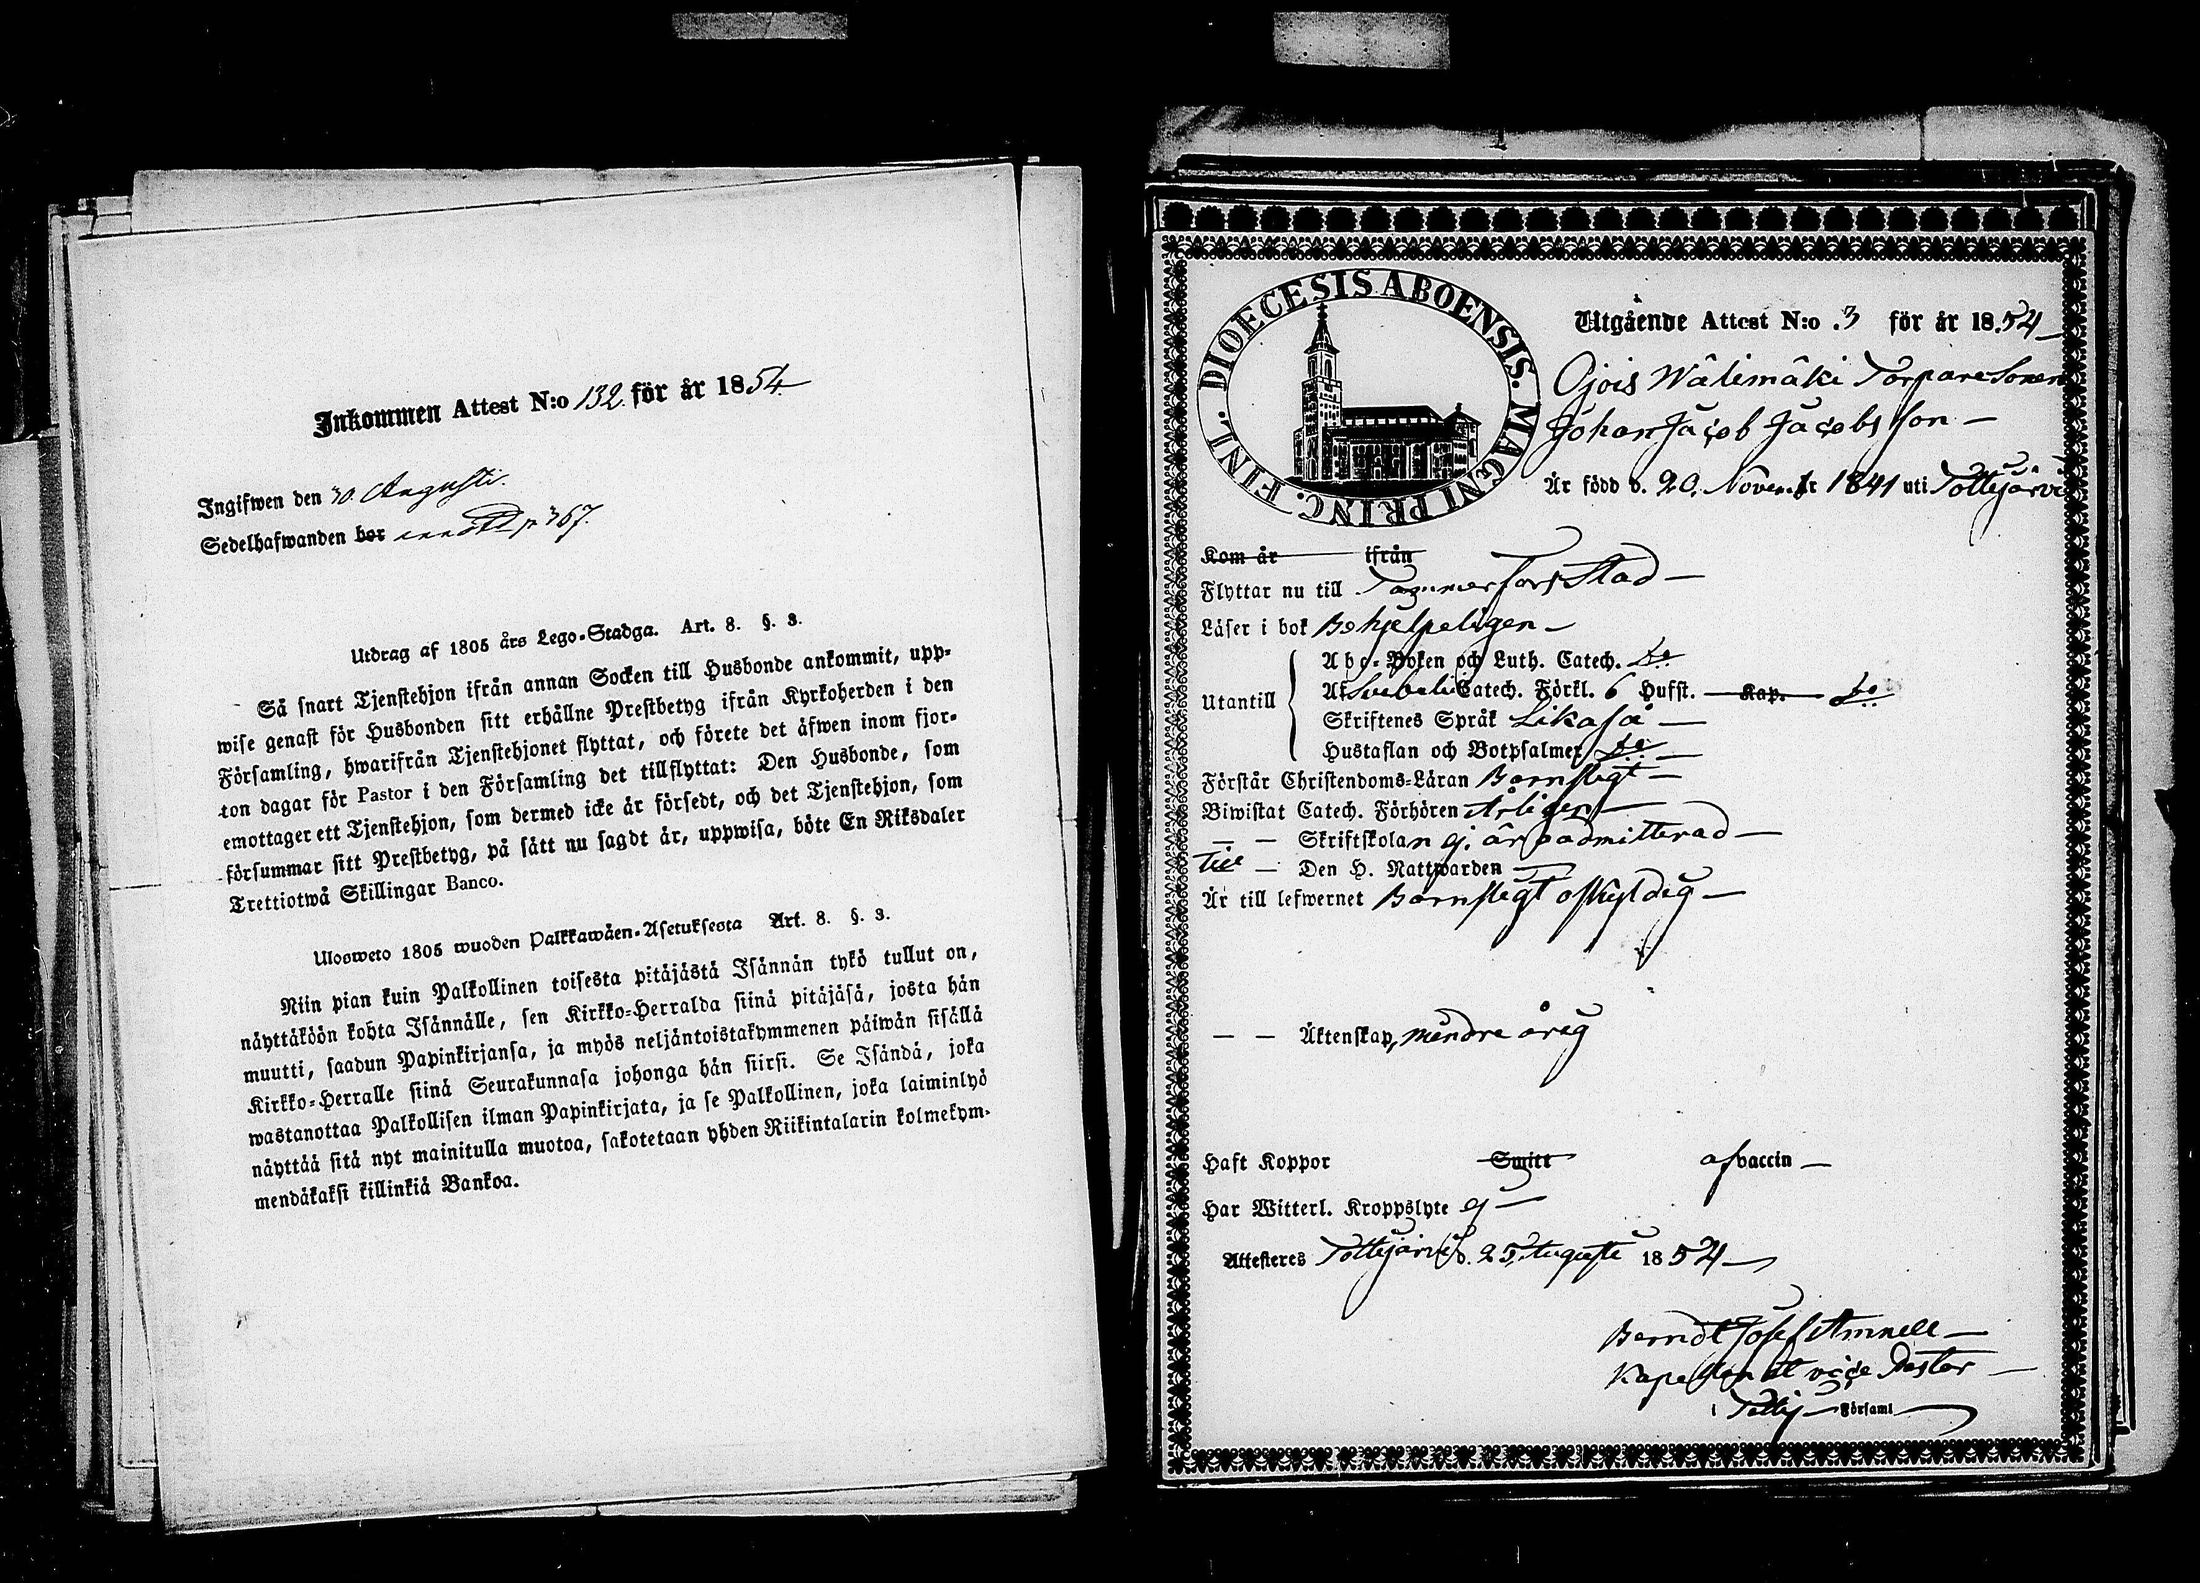 Inkommen Attest N:o 132 för år 1854
Ingifwen den 30. Augusti.
Sedelhafwanden bor p 367.
Utdrag af 1805 års Lego-Stadga. Art. 8. §. 3.
Så snart Tjenstehjon ifrån annan Socken till Husbonde ankommit, upp-
wise genast för Husbonden sitt erhållne Prestbetyg ifrån Kyrkoherden i den
Församling, hwarifrån Tjenstehjonet flyttat, och förete det äfwen inom fjor-
ton dagar för Pastor i den Församling det tillflyttat: Den Husbonde, som
emottager ett Tjenstehjon, som dermed icke är försedt, och det Tjenstehjon, som
försummar sitt Prestbetyg, på sätt nu sagdt är, uppwisa, böte En Riksdaler
Trettiotwå Skillingar Banco.
Ulosweto 1805 wuoden Palkkawäen-Asetuksesta Art. 8. §. 3.
Niin pian kuin Palkollinen toisesta pitäjästä Isännän tykö tullut on,
näyttäköön kohta Isännälle, sen Kirkko-Herralda siinä pitäjäsä, josta hän
muutti, saadun Papinkirjansa, ja myös neljäntoistakymmenen päiwän sisällä
Kirkko-Herralle siinä Seurakunnasa johonga hän siirsi. Se Isändä, joka
wastanottaa Palkollisen ilman Papinkirjata, ja se Palkollinen, joka laiminlyö
näyttää sitä nyt mainitulla muotoa, sakotetaan yhden Riikintalarin kolmekym-
mendäkaksi killinkiä Bankoa.
DIOECESIS ABOENSIS. MAGNI PRINC. FINL.
Utgående Attest N:o 3 för år 1854
Ojois Wälimäki Torparesonen
Johan Jacob Jacobsson
Är född d. 20. Novembr 1841 uti Tottijärvi
Kom år ifrån
Flyttar nu till Tammerfors Stad
Läser i bok Behjelpeligen
Utantill
Abc-Boken och Luth. Catech. do
Af Svebelii Catech. Förkl. 6 Hufst. Kap. do
Skriftenes Språk Likaså
Hustaflan och Botpsalmer do
Förstår Christendoms-Läran Barnsligt
Biwistat Catech. Förhören Årligen
— — Skriftskolan ej, är o admitterad
till — Den H. Nattwarden
Är till lefwernet Barnsligt oskyldig
— — Äktenskap, minderårig
Haft Koppor Smitt af vaccin
Har Witterl. Kroppslyte ej
Attesteres Tottijärvi d. 25 Augusti 1854
Berndt Josef Amnell
Kapellan et vice Pastor
i Tottij Församl